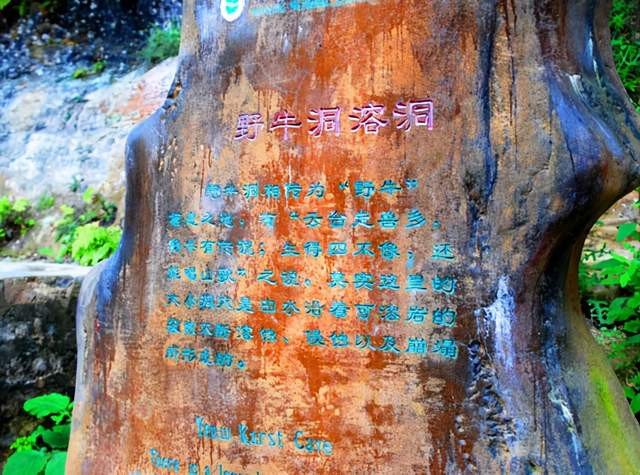 野牛洞溶洞
野牛洞相传为“野牛”
之地，有“云台走兽多，
有传说；生得四不像，还
唱山歌”之说。其实这里的
大小洞穴是由水沿着可溶岩的
裂隙不断溶蚀、侵蚀以及崩塌
所形成的。
Yeniu Karst Cave
There is a